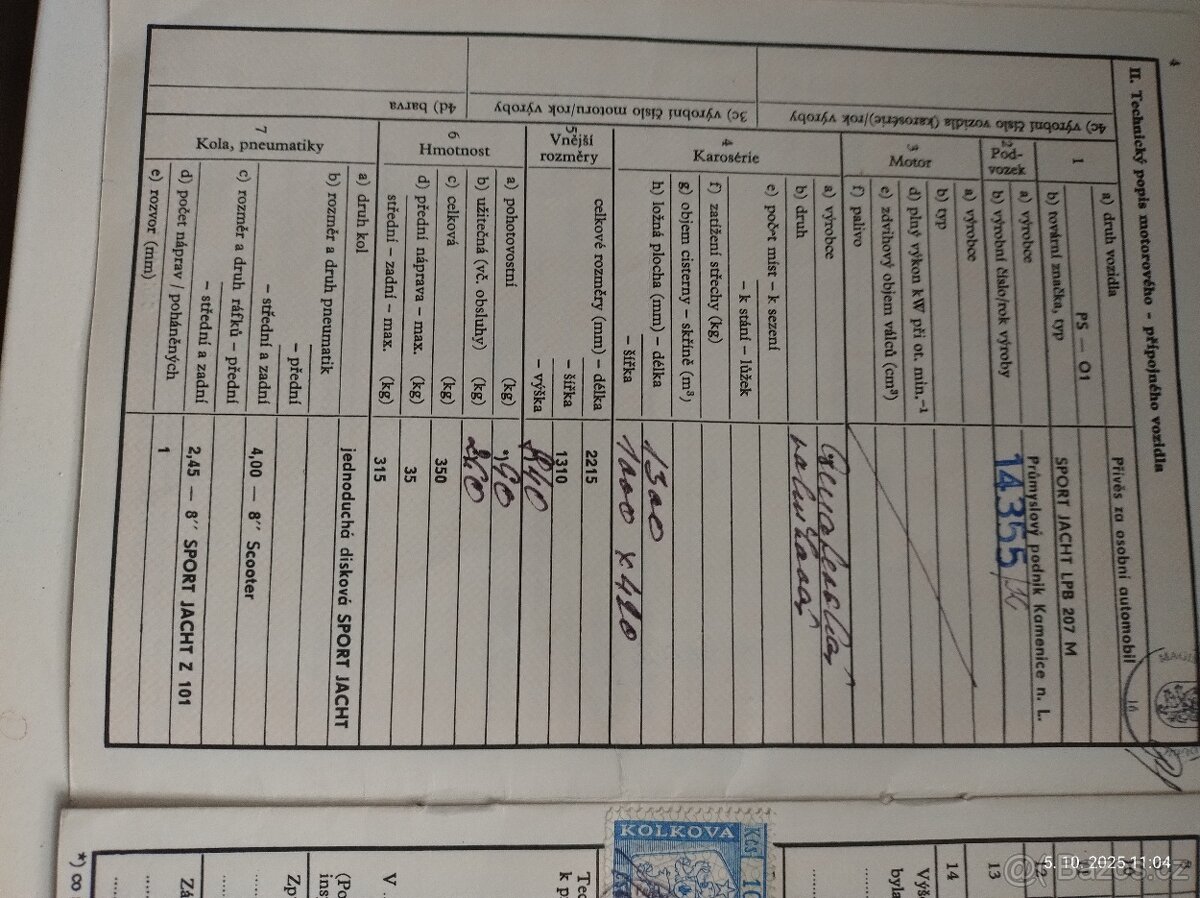 4
II. Technický popis motorového – přípojného vozidla
1
a) druh vozidla Přívěs za osobní automobil
PS — O1
b) tovární značka, typ SPORT JACHT LPB 207 M
2
Pod-
vozek
a) výrobce Průmyslový podnik Kamenice n. L.
b) výrobní číslo/rok výroby 14355
3
Motor
a) výrobce
b) typ
d) plný výkon kW při ot. min.⁻¹
e) zdvihový objem válců (cm³)
f) palivo
4
Karosérie
a) výrobce
b) druh
e) počet míst – k sezení
– k stání – lůžek
f) zatížení střechy (kg)
g) objem cisterny – skříně (m³)
h) ložná plocha (mm) – délka 1300
– šířka 1000 x 420
5
Vnější
rozměry
celkové rozměry (mm) – délka 2215
– šířka 1310
– výška 840
6
Hmotnost
a) pohotovostní (kg) 90
b) užitečná (vč. obsluhy) (kg) 260
c) celková (kg) 350
d) přední náprava – max. (kg) 35
střední – zadní – max. (kg) 315
7
Kola, pneumatiky
a) druh kol jednoduchá disková SPORT JACHT
b) rozměr a druh pneumatik
– přední
– střední a zadní 4,00 — 8″ Scooter
c) rozměr a druh ráfků – přední
– střední a zadní 2,45 — 8″ SPORT JACHT Z 101
d) počet náprav / poháněných 1
e) rozvor (mm)
4c) výrobní číslo vozidla (karosérie)/rok výroby
3c) výrobní číslo motoru/rok výroby
4d) barva
KOLKOVA
Kčs
10
14
13
12
Výše
byla
Tec
k p
V
(Po
ins
Zp
Zá
*)
5. 10. 2025 11:04
Bazos.cz